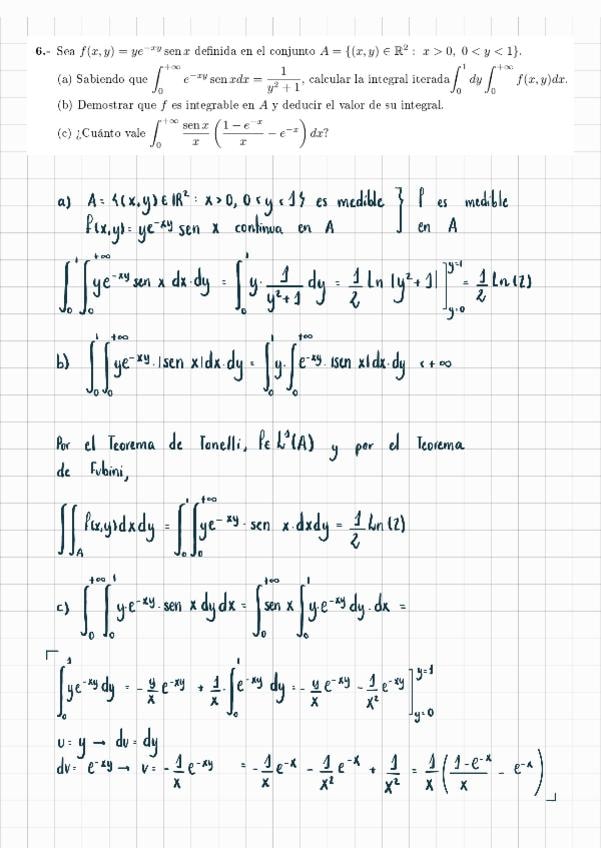 6.- Sea f(x, y) = ye^{-xy} sen x definida en el conjunto A = {(x, y) ∈ ℝ² : x > 0, 0 < y < 1}.
(a) Sabiendo que ∫_0^{+∞} e^{-xy} sen x dx = 1/(y² + 1), calcular la integral iterada ∫_0^1 dy ∫_0^{+∞} f(x, y)dx.
(b) Demostrar que f es integrable en A y deducir el valor de su integral.
(c) ¿Cuánto vale ∫_0^{+∞} (sen x)/x ((1 − e^{-x})/x − e^{-x}) dx?
a) A = {(x,y) ∈ ℝ² : x > 0, 0 < y < 1} es medible } f es medible
f(x,y) = ye^{-xy} sen x continua en A } en A
∫_0^1 ∫_0^{+∞} ye^{-xy} sen x dx · dy = ∫_0^1 y · 1/(y²+1) dy = 1/2 Ln |y²+1| ]_{y=0}^{y=1} = 1/2 Ln(2)
b) ∫_0^1 ∫_0^{+∞} ye^{-xy} · |sen x| dx · dy = ∫_0^1 y · ∫_0^{+∞} e^{-xy} · |sen x| dx · dy < +∞
Por el Teorema de Tonelli, f ∈ L¹(A) y por el Teorema
de Fubini,
∬_A f(x,y) dx dy = ∫_0^1 ∫_0^{+∞} ye^{-xy} · sen x · dx dy = 1/2 Ln(2)
c) ∫_0^{+∞} ∫_0^1 y·e^{-xy} · sen x dy dx = ∫_0^{+∞} sen x ∫_0^1 y·e^{-xy} dy · dx =
∫_0^1 ye^{-xy} dy = -y/x e^{-xy} + 1/x · ∫_0^1 e^{-xy} dy = -y/x e^{-xy} - 1/x² e^{-xy} ]_{y=0}^{y=1}
u = y → du = dy
dv = e^{-xy} → v = -1/x e^{-xy} = -1/x e^{-x} - 1/x² e^{-x} + 1/x² = 1/x ((1-e^{-x})/x - e^{-x})